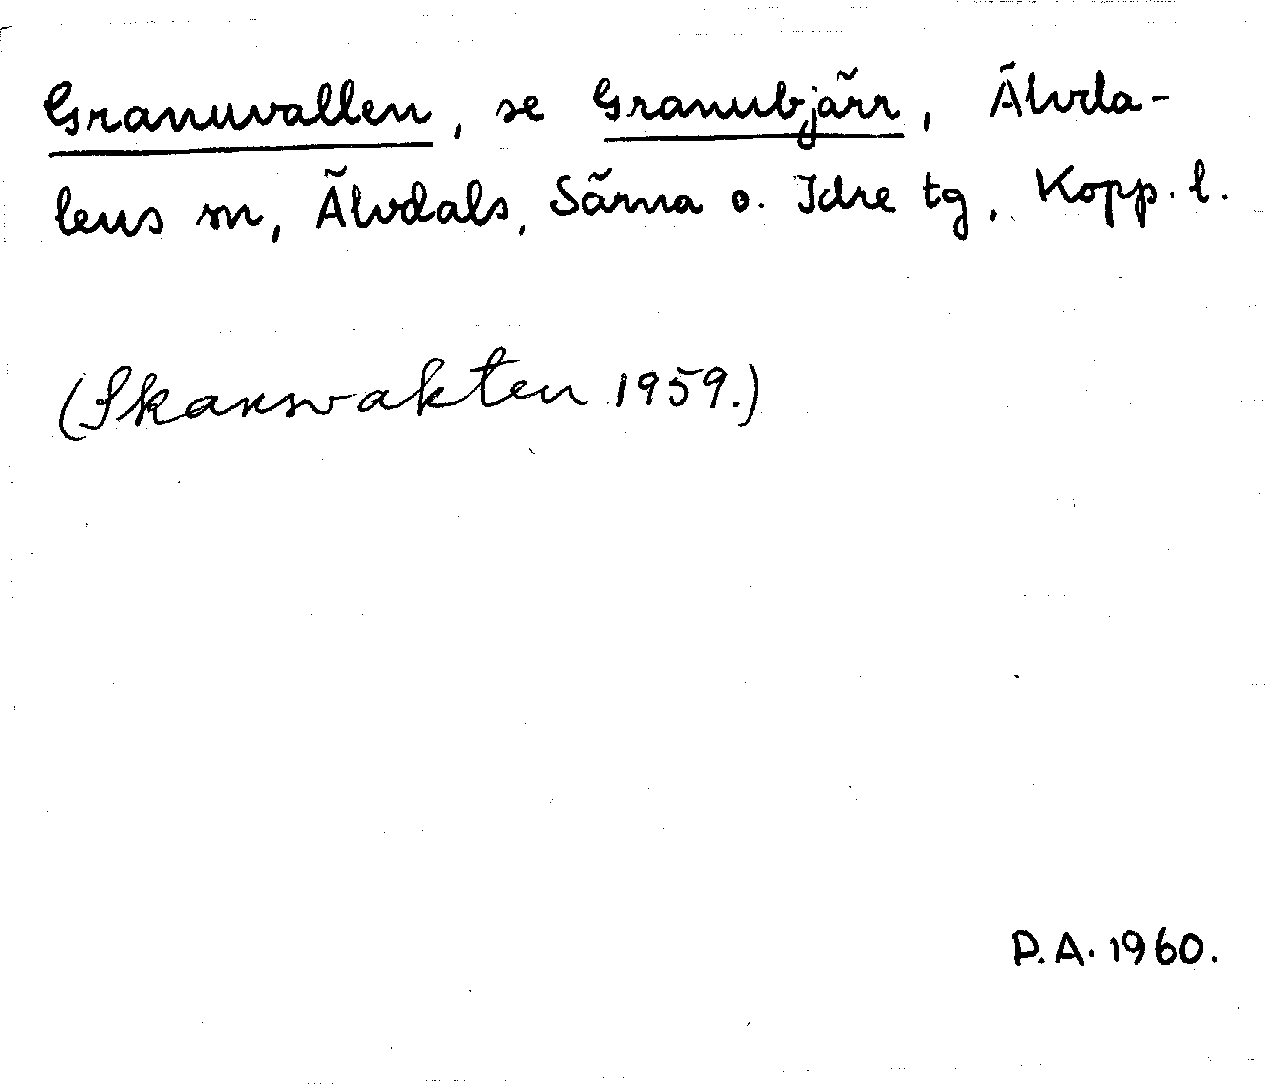 Granuvallen, se Granubjärr, Älvda-
lens sn, Älvdals, Särna o. Idre tg, Kopp. l.
(Skansvakten 1959.)
P.A. 1960.